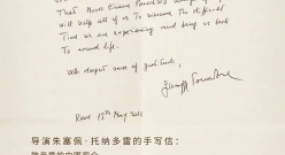 That Nuovo Cinema Paradiso
will help all of us to overcome the difficult
time we are experiencing and bring us back
to normal life.
With deepest sense of gratitude,
Giuseppe Tornatore
Rome 13th May
导演朱塞佩·托纳多雷的手写信：